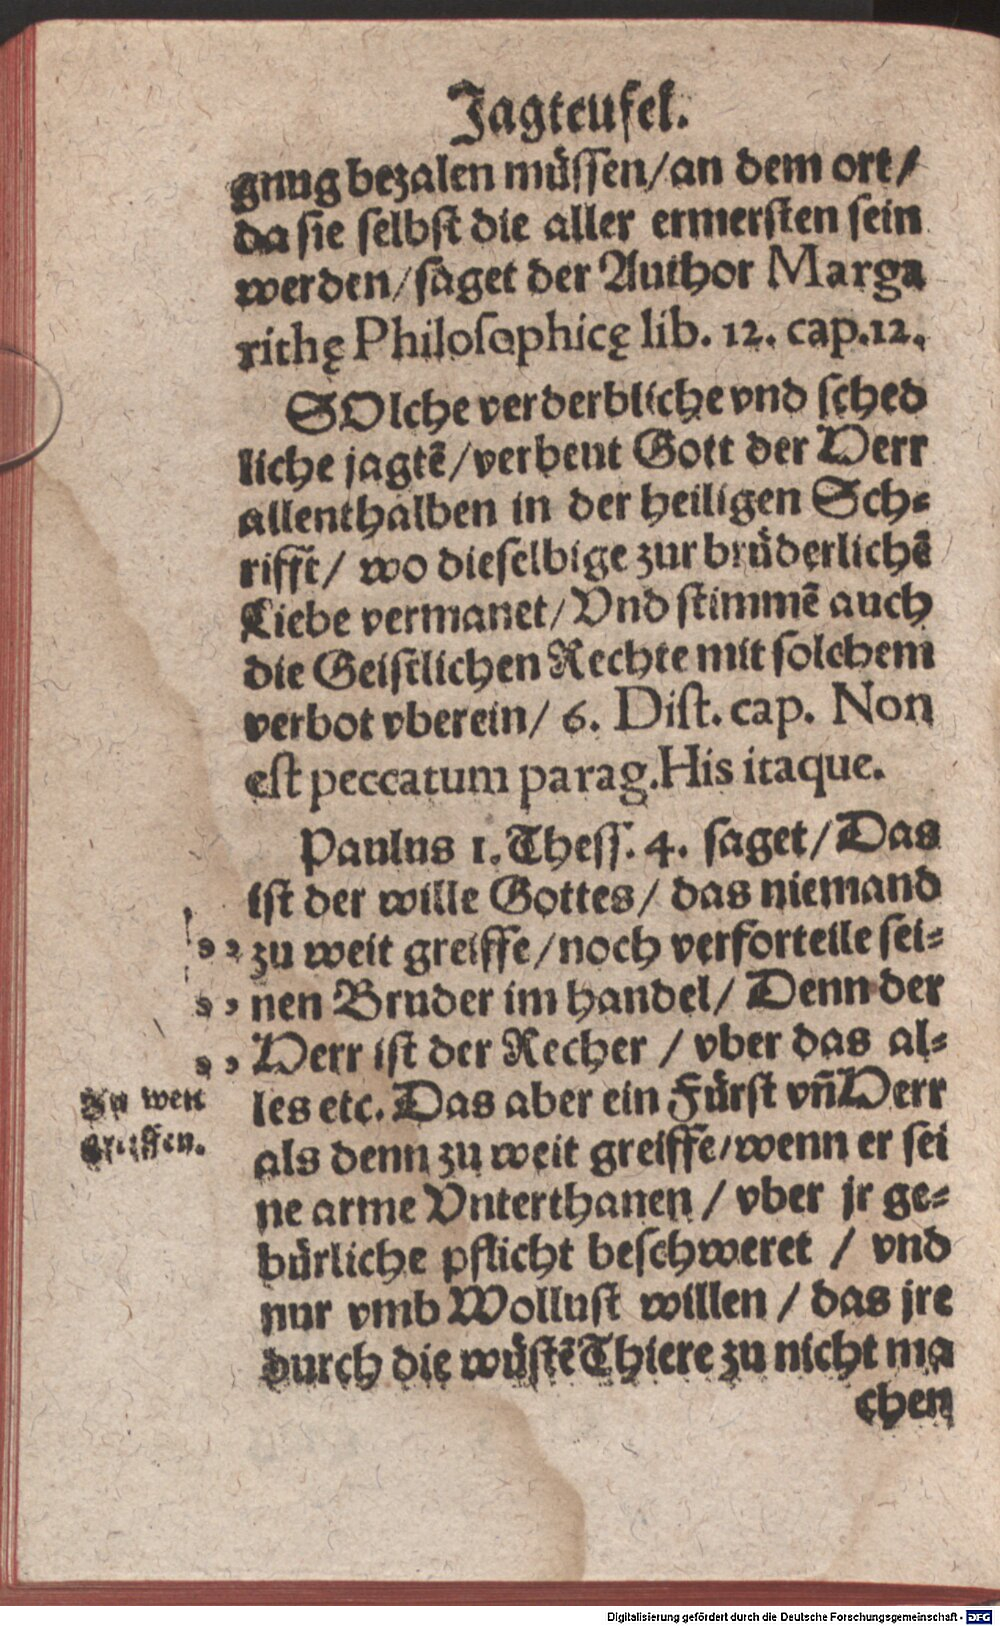 Jagteufel.
gnug bezalen müssen/an dem ort/
da sie selbst die aller ermersten sein
werden/saget der Author Marga
rithę Philosophicę lib. 12. cap.12.
SOlche verderbliche vnd sched
liche jagtẽ/verbeut Gott der HErr
allenthalben in der heiligen Sch⸗
rifft/ wo dieselbige zur brüderlichẽ
Liebe vermanet/Vnd stimmẽ auch
die Geistlichen Rechte mit solchem
verbot vberein/ 6. Dist. cap. Non
est peccatum parag.His itaque.
Paulus 1. Thess. 4. saget/Das
ist der wille Gottes/ das niemand
zu weit greiffe/noch verforteile sei⸗
nen Bruder im handel/ Denn der
Herr ist der Recher / vber das al⸗
les etc. Das aber ein Fürst vñ Herr
als denn zu weit greiffe/wenn er sei
ne arme Vnterthanen / vber jr ge⸗
bürliche pflicht beschweret / vnd
nur vmb Wollust willen / das jre
durch die wüstẽ Thiere zu nicht ma
chen
Zu weit
Greiffen.
Digitalisierung gefördert durch die Deutsche Forschungsgemeinschaft - DFG